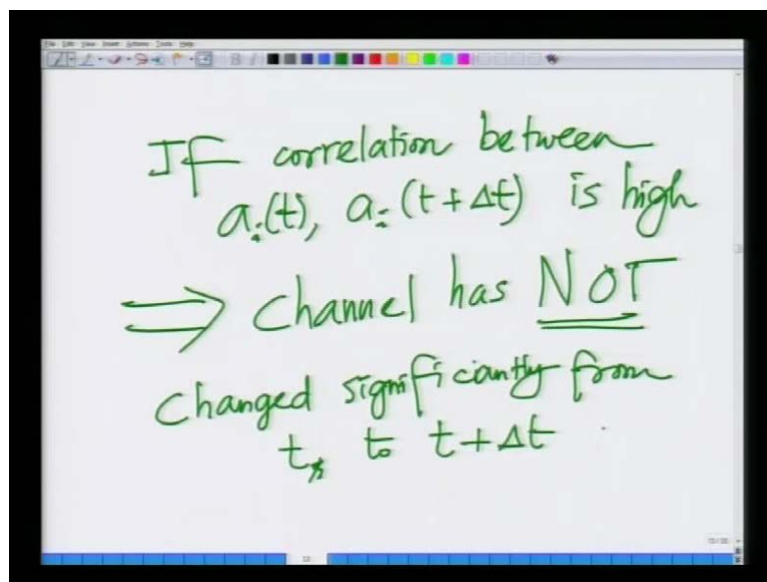 File Edit View Insert Actions Tools Help
If correlation between
aᵢ(t), aᵢ(t+Δt) is high
⇒ Channel has NOT
changed significantly from
t, to t+Δt